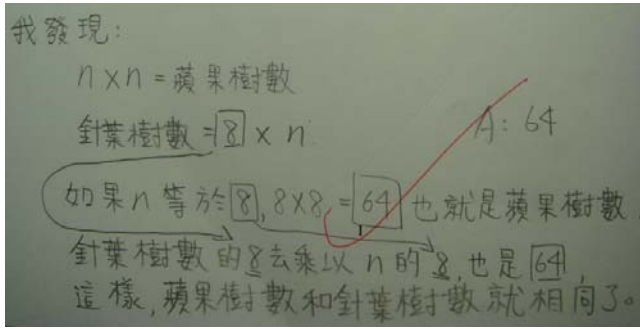 我發現:
n×n=蘋果樹數
針葉樹數=8×n
A:64
如果n等於8,8×8=64也就是蘋果樹數
針葉樹數的8去乘以n的8,也是64,
這樣,蘋果樹數和針葉樹數就相同了。